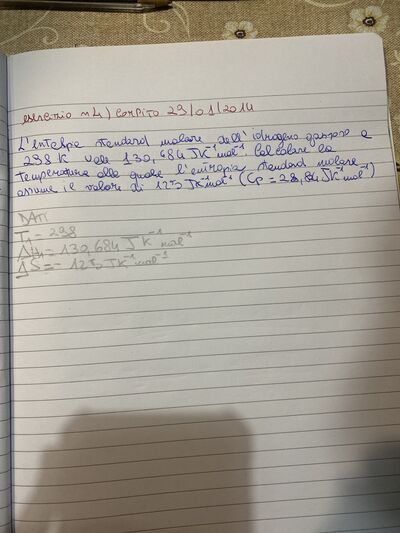 esercizio n4) compito 29/01/2014
L'intalpe standard molare dell'idrogeno gassoso a
298 K vale 130,684 JK⁻¹mol⁻¹. Calcolare la
temperatura alla quale l'entropia standard molare
assume il valore di 125 JK⁻¹mol⁻¹ (Cp = 28,84 JK⁻¹mol⁻¹)
DATI
T₁ = 298
= 130,684 JK⁻¹ mol⁻¹
125 JK⁻¹mol⁻¹